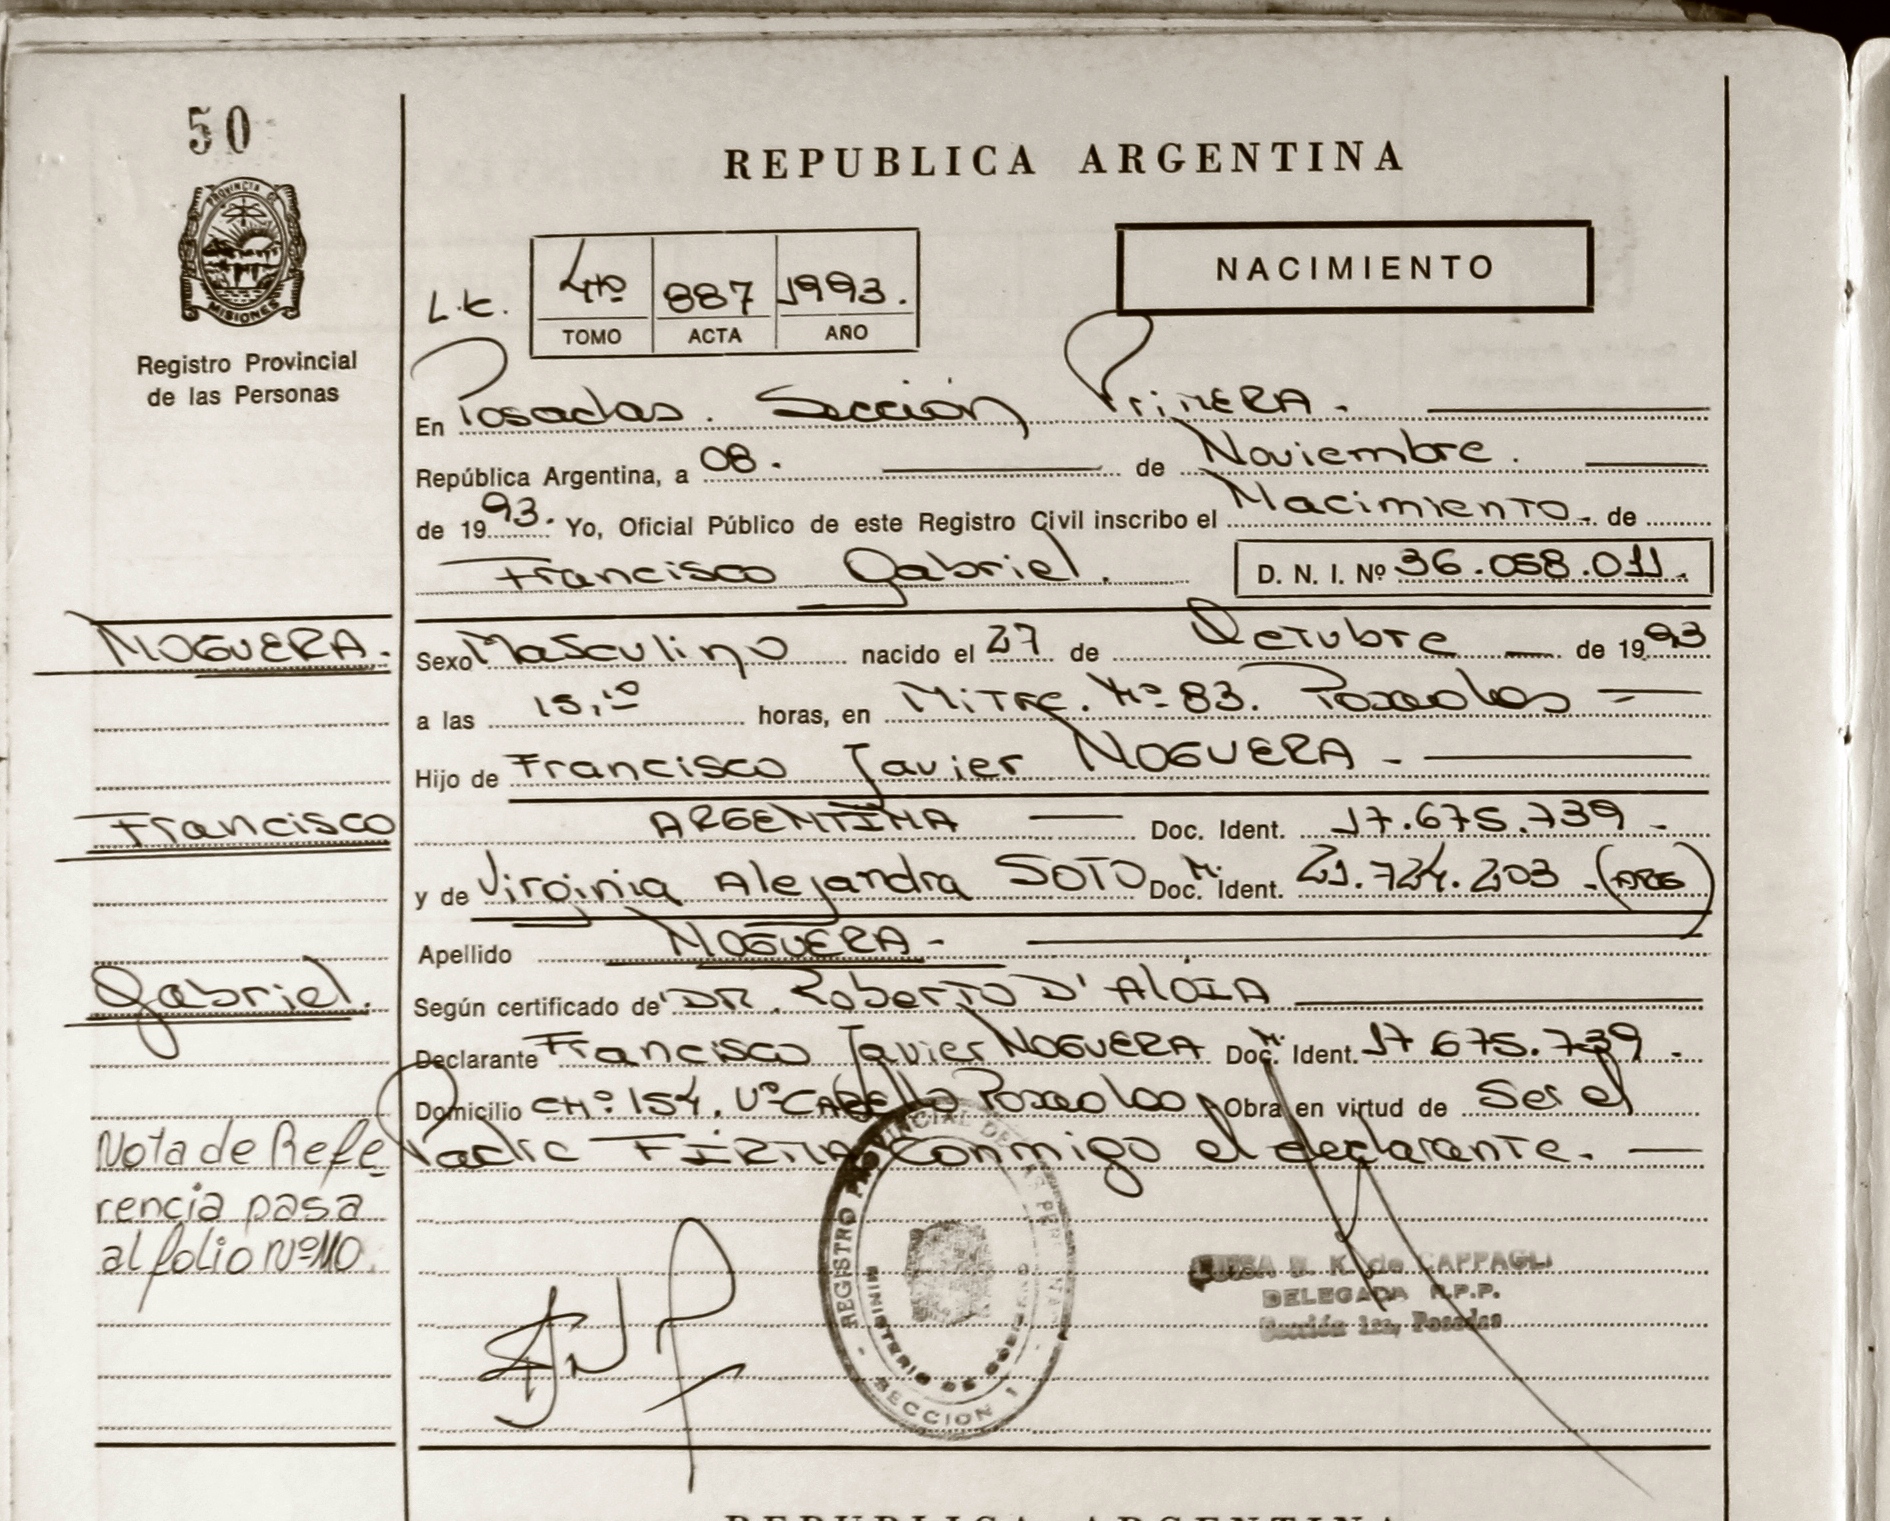 50
PROVINCIA DE
MISIONES
Registro Provincial
de las Personas
REPUBLICA ARGENTINA
NACIMIENTO
L.E. 4to 887 1993.
TOMO ACTA AÑO
En Posadas. Sección Primera.
República Argentina, a 08. de Noviembre.
de 1993. Yo, Oficial Público de este Registro Civil inscribo el Nacimiento. de
Francisco Gabriel. D. N. I. Nº 36.058.011.
NOGUERA. Sexo Masculino nacido el 27 de Octubre de 1993
a las 15,10 horas, en Mitre. Nº 83. Posadas
Hijo de Francisco Javier NOGUERA -
Francisco ARGENTINA Doc. Ident. 17.675.739.
y de Virginia Alejandra SOTO Doc. N. Ident. 21.724.203. (ARG)
Apellido NOGUERA -
Gabriel. Según certificado de DR. Roberto D'ALOIA
Declarante Francisco Javier NOGUERA Doc. N. Ident. 17.675.739.
Domicilio CHº 154. Posadas, Obra en virtud de Ser el
Padre FIRMA Conmigo el declarante.
Nota de Refe
rencia pasa
al folio Nº 110.
REGISTRO PROVINCIAL DE LAS PERSONAS
MINISTERIO DE GOBIERNO
SECCION 1
K. de CAPPAGLI
DELEGADA R.P.P.
Sección 1ra, Posadas
REPUBLICA ARGENTINA